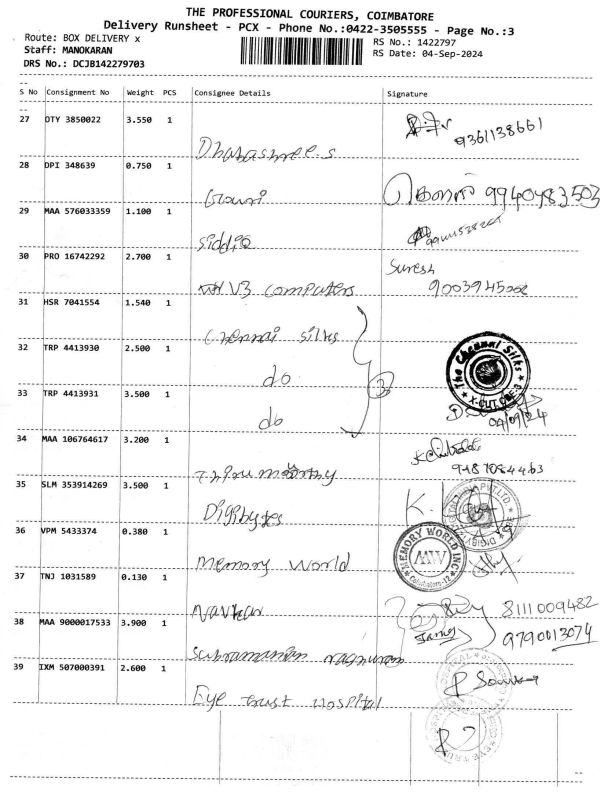 THE PROFESSIONAL COURIERS, COIMBATORE
Delivery Runsheet - PCX - Phone No.:0422-3505555 - Page No.:3
Route: BOX DELIVERY x
Staff: MANOKARAN
DRS No.: DCJB142279703
RS No.: 1422797
RS Date: 04-Sep-2024
S No Consignment No Weight PCS Consignee Details Signature
27 OTY 3850022 3.550 1
9361138661
Dharashree.s
28 DPI 348639 0.750 1
Gowri 9940483503
29 MAA 576033359 1.100 1
Siddiq
30 PRO 16742292 2.700 1 Suresh
V3 Computers 9003945202
31 HSR 7041554 1.540 1
Chennai silks
32 TRP 4413930 2.500 1
do
The Chennai Silks
X-CUT, CBE-3
33 TRP 4413931 3.500 1
3
do 04/09/24
34 MAA 106764617 3.200 1
35 SLM 353914269 3.500 1
Digibytes K.
36 VPM 5433374 0.380 1
MEMORY WORLD INC
MW
Coimbatore-12
Memory World
37 TNJ 1031589 0.130 1
Navkar 8111009482
38 MAA 9000017533 3.900 1
9790013074
Subramanian raghuram
39 IXM 507000391 2.600 1
Eye trust Hospital